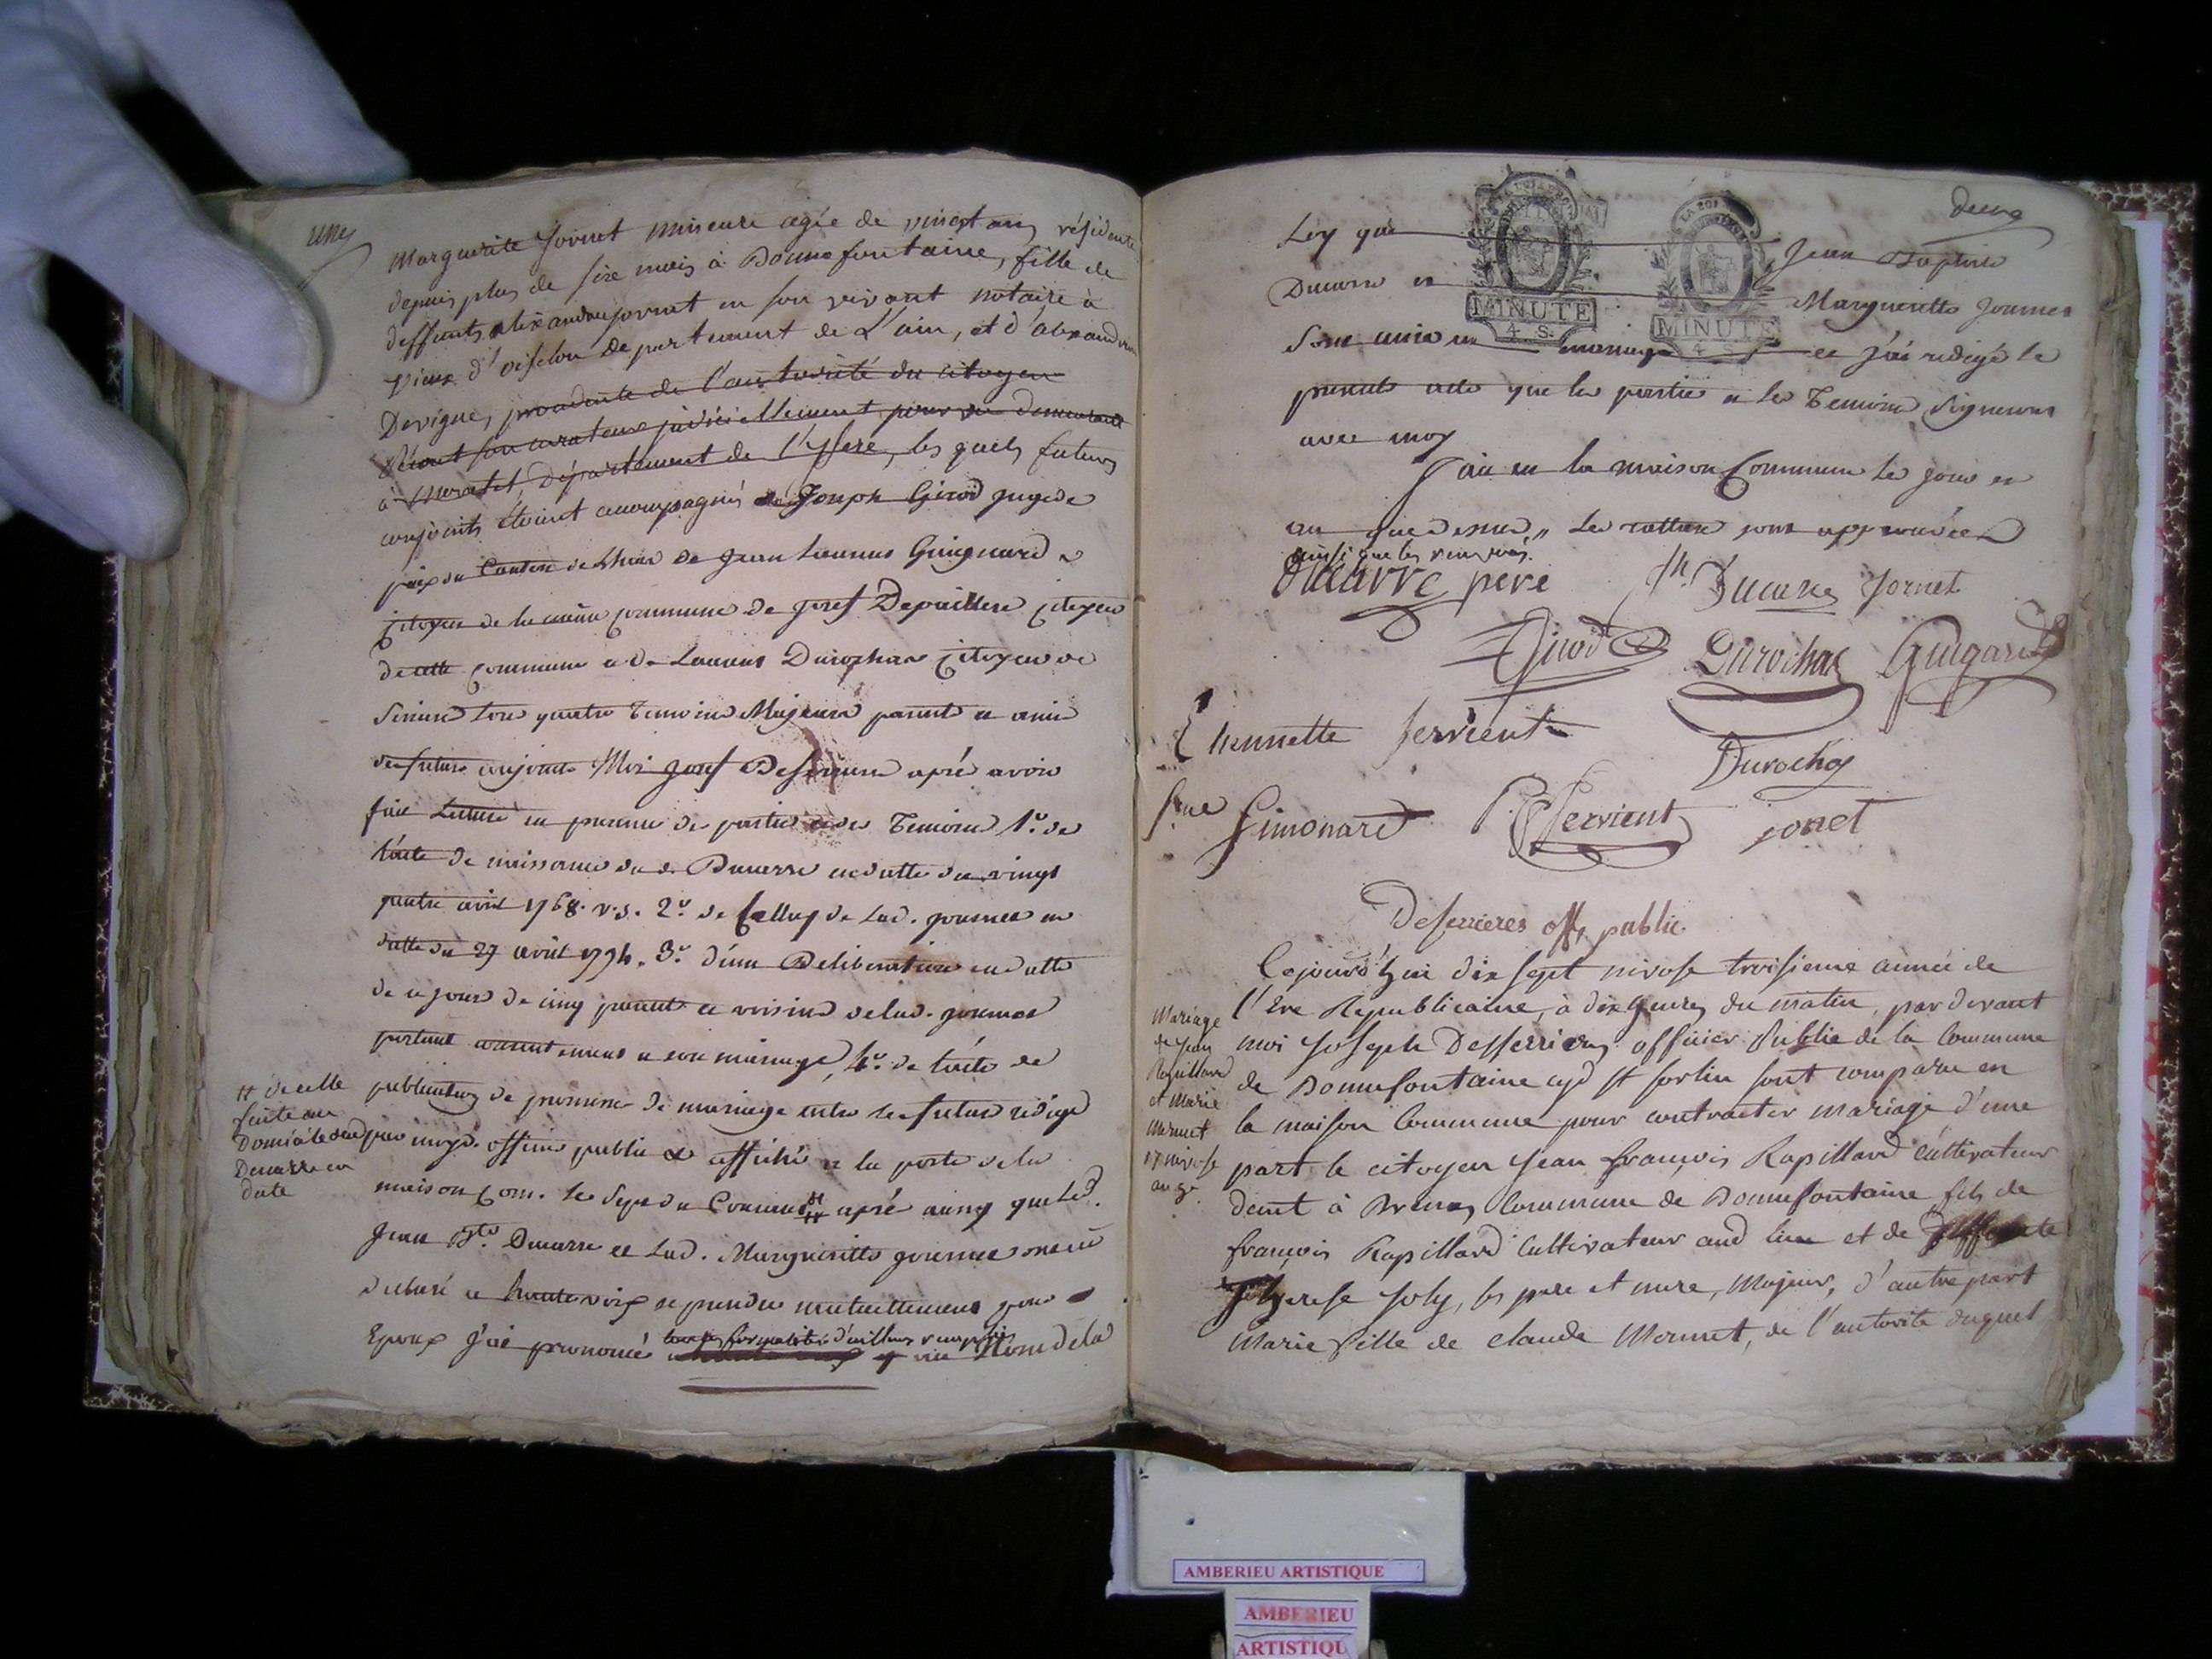 une
Marguerite Jovnet mineure agée de vingt ans, résidente
depuis plus de six mois à Bonnefontaine, fille de
deffunts alixandre jovnet en son vivant notaire à
vieux d'oiselon Departement de L'ain, et d'alexandrine
Devigne, procedente de l'autorité du citoyen
son curateur judiciellement pourvu demeurant
à Meratel, Département de l'Isere, les quels futurs
conjoints étoient accompagnés de Joseph Girod juge de
paix du Canton de Lhuis de Jean Guignard
citoyen de la même commune de josef Depaillere citoyen
de cette commune de Laurent Durochat citoyen de
tous quatre temoins Majeurs parent et amis
des futurs conjoints Moi josef Deserieres après avoir
fait Lecture en presence des parties et des Temoins 1.º de
l'acte de naissance du d. Ducarre en datte du vingt
quatre avril 1768. v.s. 2.º de Celluy de Lad. jovnet en
datte du 27 avril 1774. 3.º d'une Deliberation en datte
de ce jour de cinq parents et voisins de lad. jovnet
portant consentement a son mariage, 4.º de l'acte de
publication de promesse de mariage entre les futurs rédigé
par moyd. officier public et affiché a la porte de la
maison Com. le sept du Courant après aussy que led.
Jean Bte. Ducarre et Lad. Margueritte jovnet on eu
declaré a haute voix se prendre mutuellement pour
Epoux j'ai prononcé au Nom de la
toutes formalités d'ailleurs remplies
# de celle
faite au
Domicile dud
Ducarre en
date
deux
Loy que Jean Baptiste
Ducarre et Margueritte Jovnet
sont unis en mariage et j'ai redigé le
present acte que les parties et les Temoins signeront
avec moy
Fait en la maison Commune les jour et
an que dessus, les ratures sont approuvées
ainsi que les renvois.
Ducarre pere Ducarre Jornet
Girod Durochat Guigard
Ehennette servient
Durochas
Simonard P. Servient jonet
Deserieres off. public
Cejourd'hui dix sept nivose troisieme année de
l'Ere Republicaine, à dix heures du matin, par devant
moi Joseph Desserrieres officier Public de la Commune
de Bonnefontaine cyd st sorlin sont comparu en
la maison Commune pour contracter mariage d'une
part le citoyen Jean françois Rapillard cultivateur
demt à Brenas Commune de Bonnefontaine, fils de
françois Rapillard Cultivateur aud lieu et de deffunte
Therese Joly, ses pere et mere, Majeur, d'autre part
Marie fille de claude Mornet, de l'autorite duquel
Mariage
de Jean
Rapillard
et Marie
Mornet
17 nivose
an 3e.
MINUTE
4. S.
MINUTE
4
AMBERIEU ARTISTIQUE
AMBERIEU
ARTISTIQU